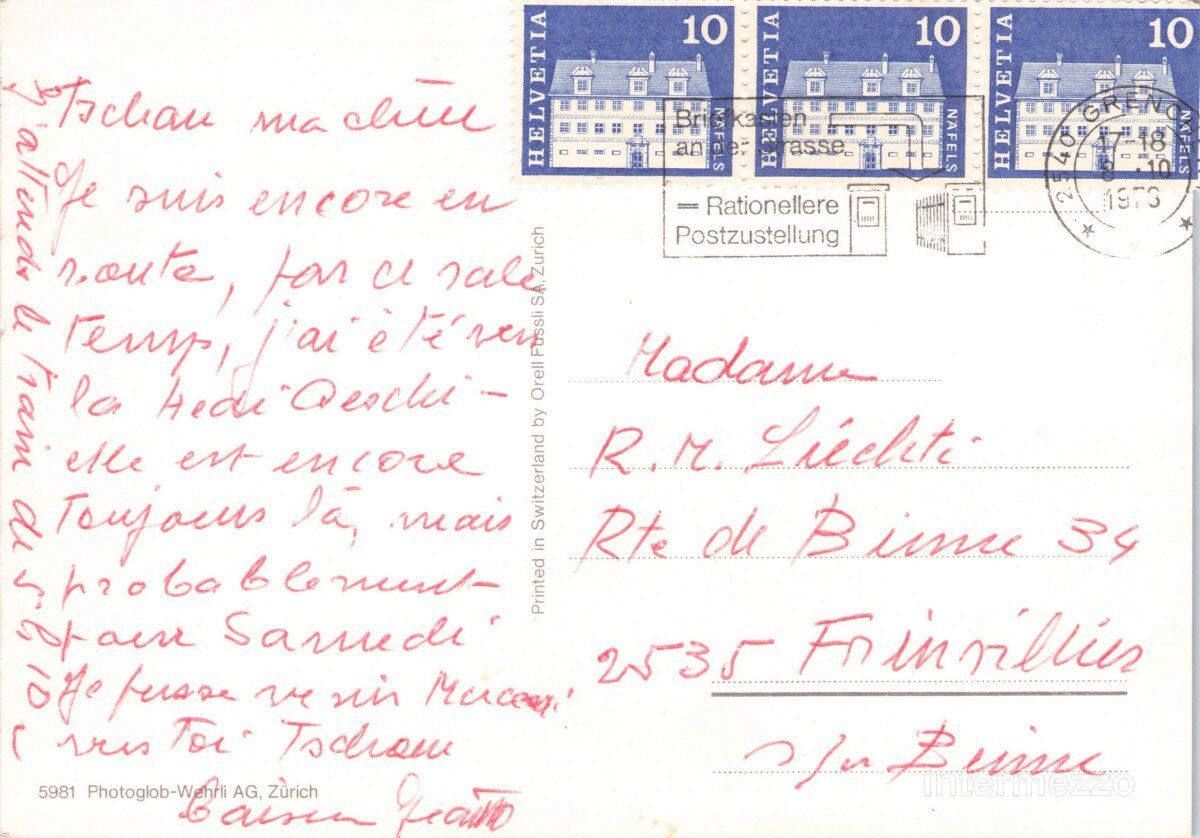 Tschau ma chère
Je suis encore en
route, par ce sale
temps, j'ai été vers
la Hedi Oeschi -
elle est encore
toujours là, mais
probablement
pour Samedi
Je pense venir
vers Toi Tschau
j'attends le train de
5981 Photoglob-Wehrli AG, Zürich
Printed in Switzerland by Orell Füssli SA, Zürich
HELVETIA 10 NÄFELS
HELVETIA 10 NÄFELS
HELVETIA 10 NÄFELS
Briefkasten
an der Strasse
= Rationellere
Postzustellung
2540 GRENCHEN
17-18
1973
Madame
R. M. Liechti
Rte de Bienne 34
2535 Frinvillier
s/ Bienne
intermezzo